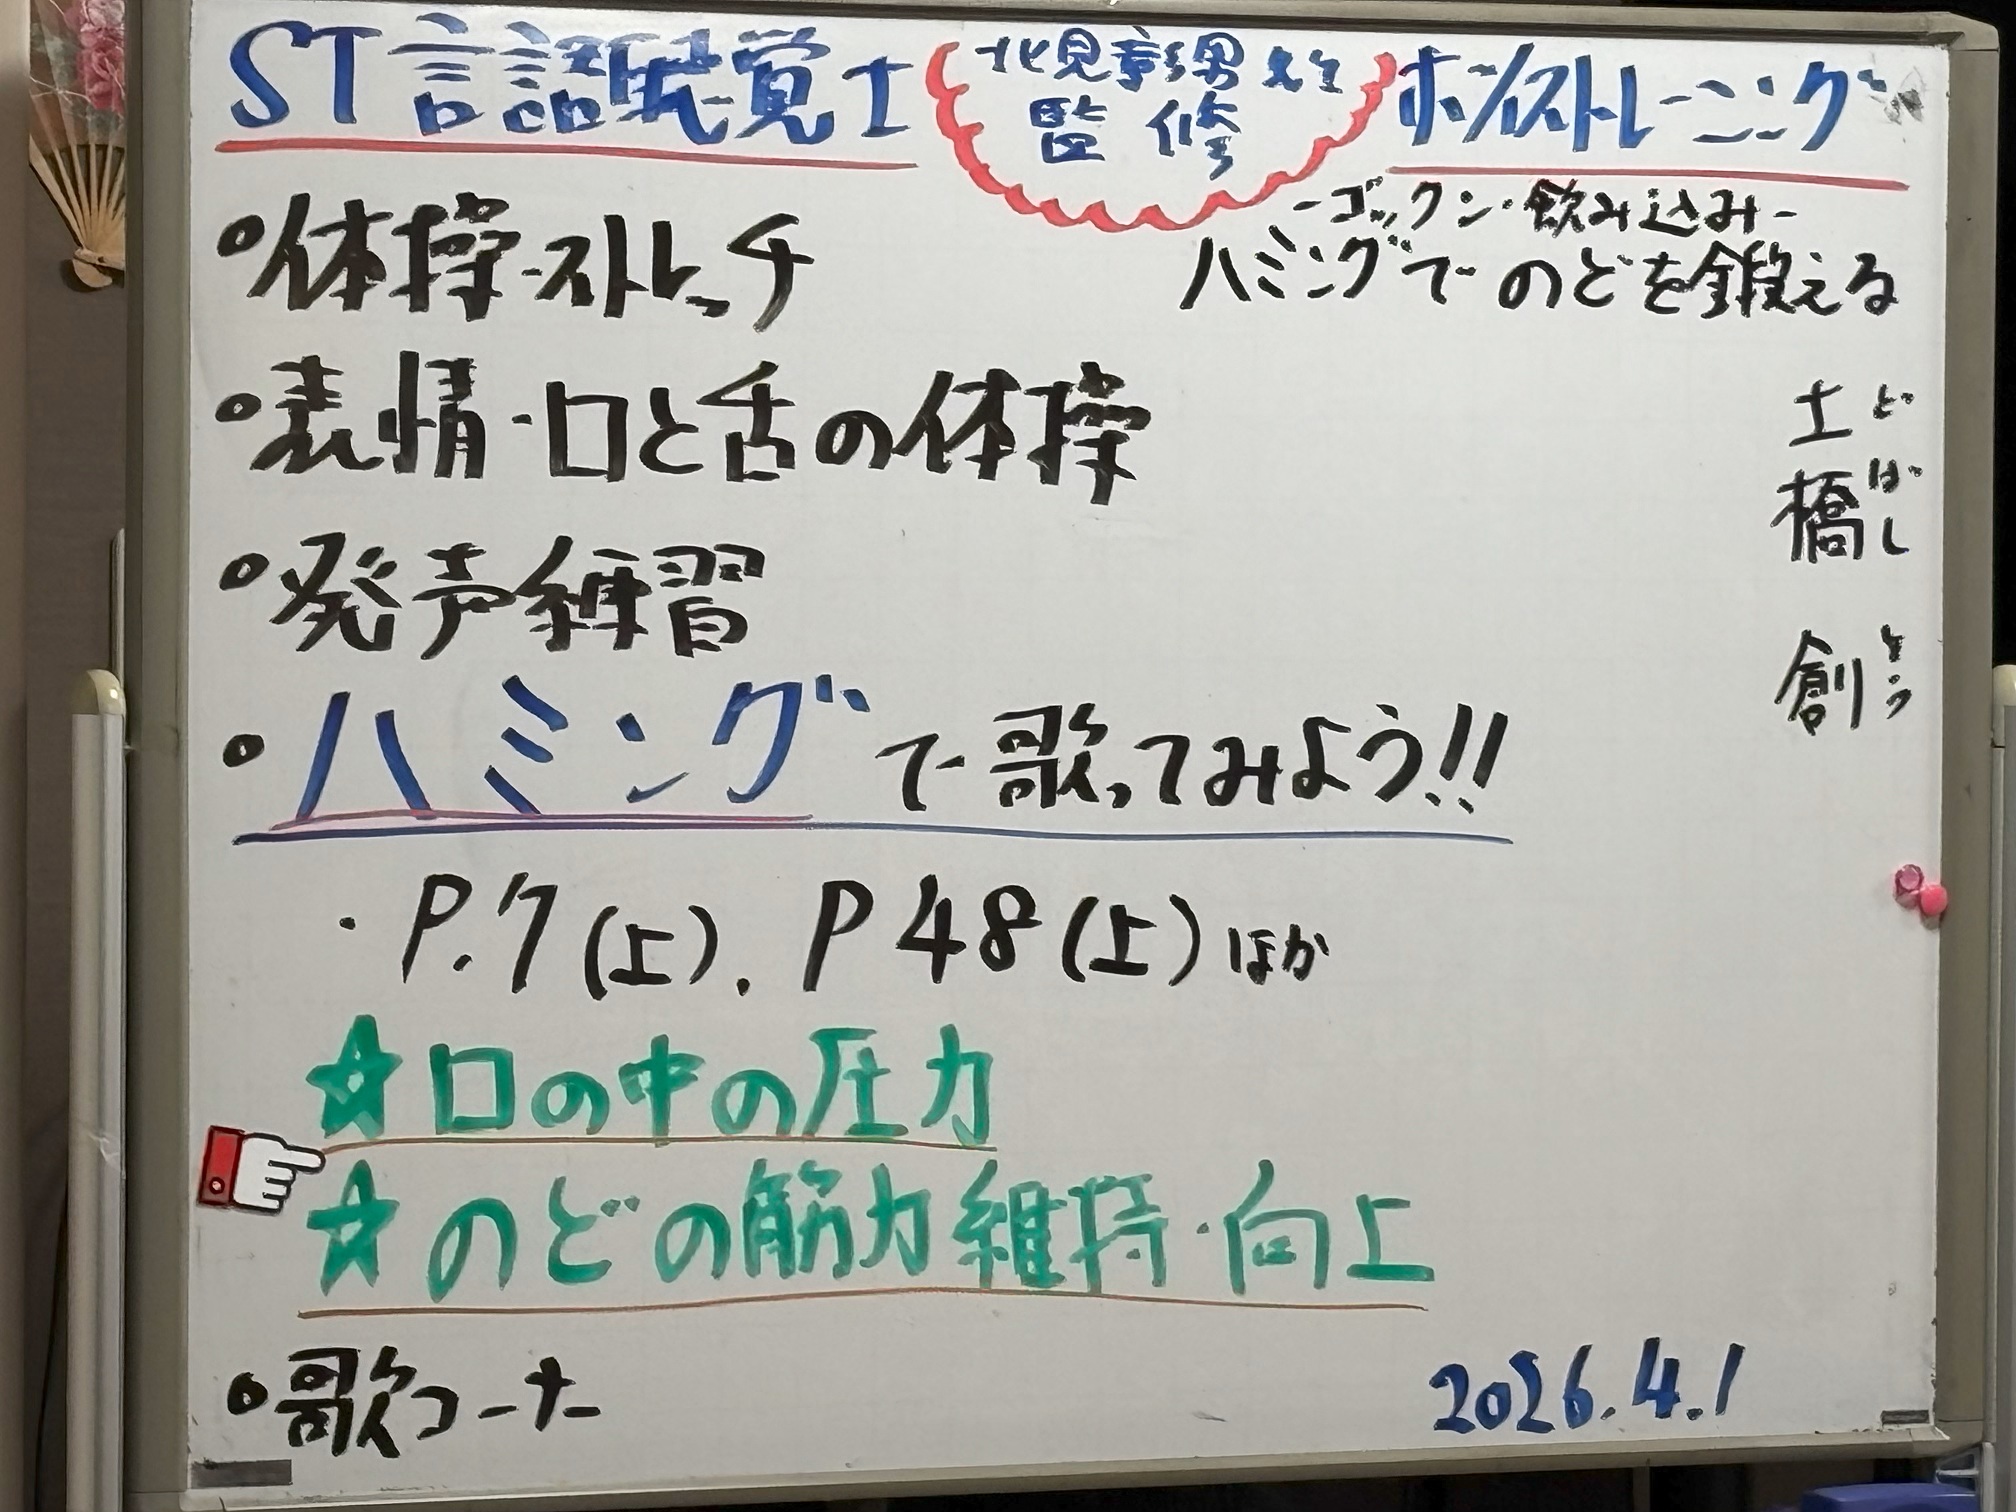 ST 言語聴覚士
北見彰男 先生
監修
ボイストレーニング
-ゴックン・飲み込み-
ハミングでのどを鍛える
土橋 創
どばし とう
○体操・ストレッチ
○表情・口と舌の体操
○発声練習
○ハミングで歌ってみよう!!
・P.7(上). P48(上)ほか
☆口の中の圧力
☆のどの筋力維持・向上
○歌コーナー
2026.4.1